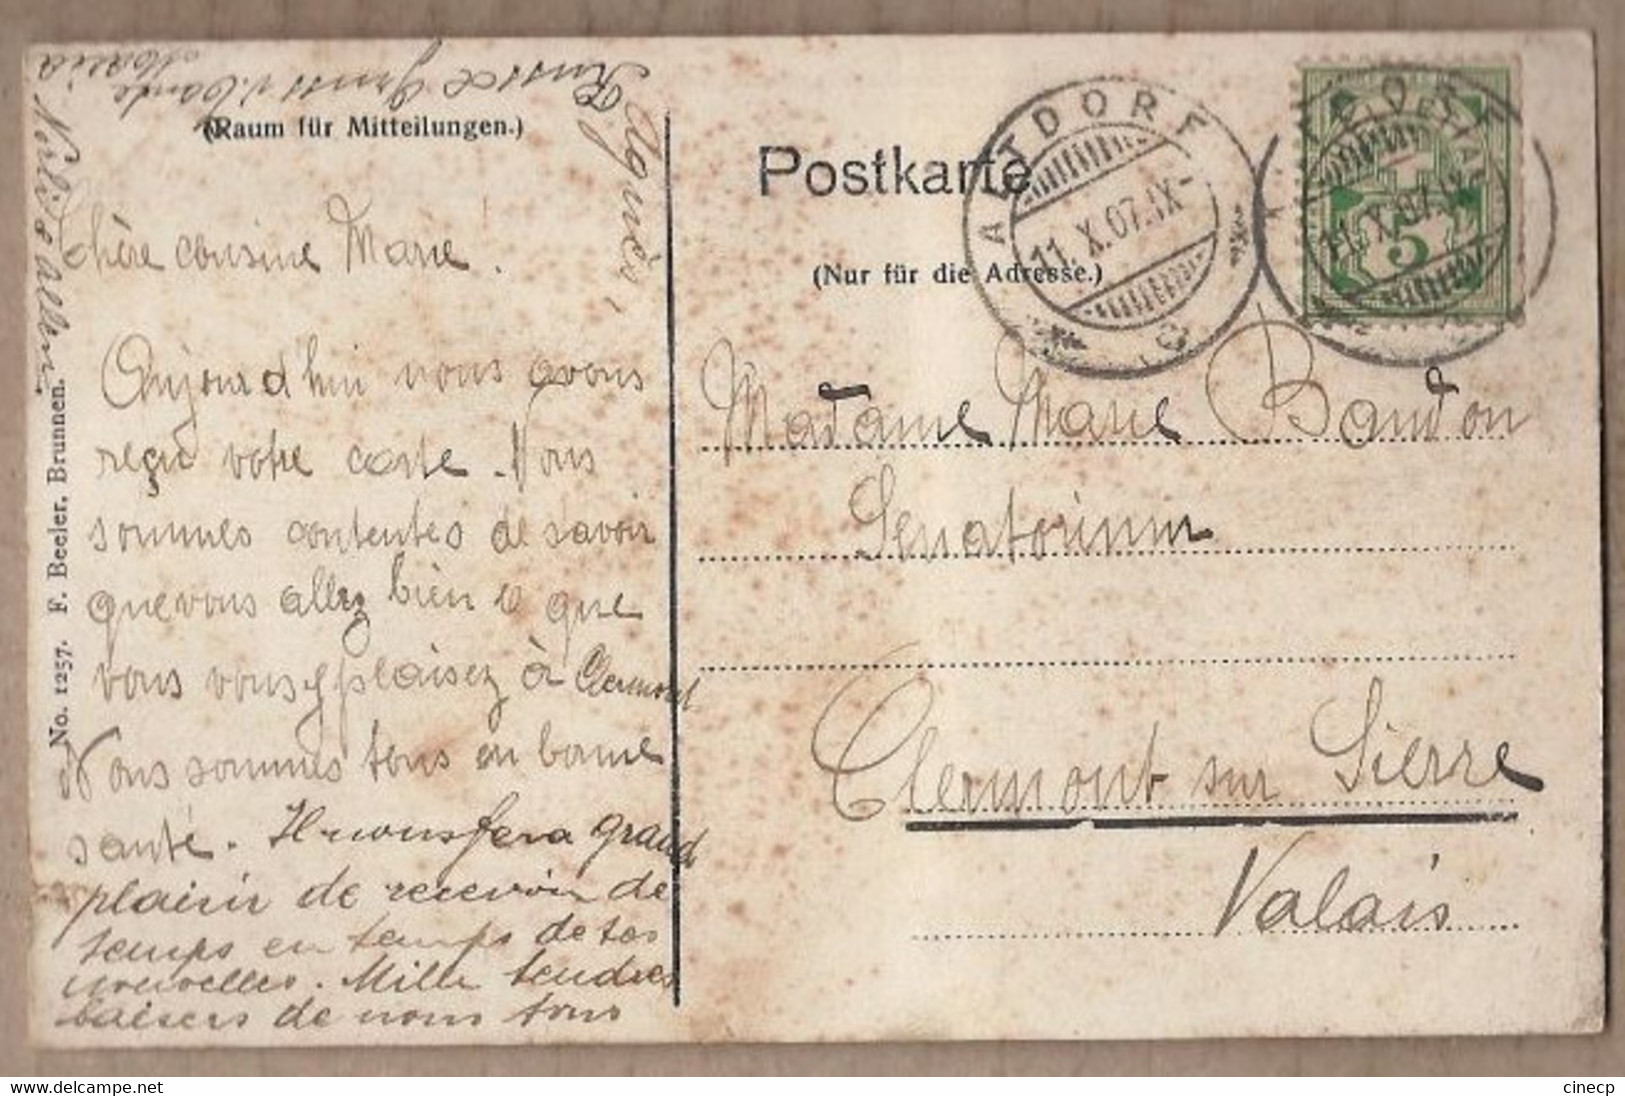 (Raum für Mitteilungen.)
chère cousine Marie.
Aujourd'hui nous avons
reçu votre carte. Nous
sommes contentes de savoir
que vous allez bien e que
vous vous y plaisez à Clermont
Nous sommes tous en bonne
santé. Il nous fera grand
plaisir de recevoir de
temps en temps de tes
nouvelles. Mille tendres
baisers de nous tous
Agnès,
Gruss v.
Maria
No. 1257. F. Beeler, Brunnen.
Postkarte
(Nur für die Adresse.)
ALTDORF
11.X.07.IX-
11.X.07.IX-
HELVETIA
5
Madame Marie Baudon
Senatorium
Clermont sur Sierre
Valais
cinecp